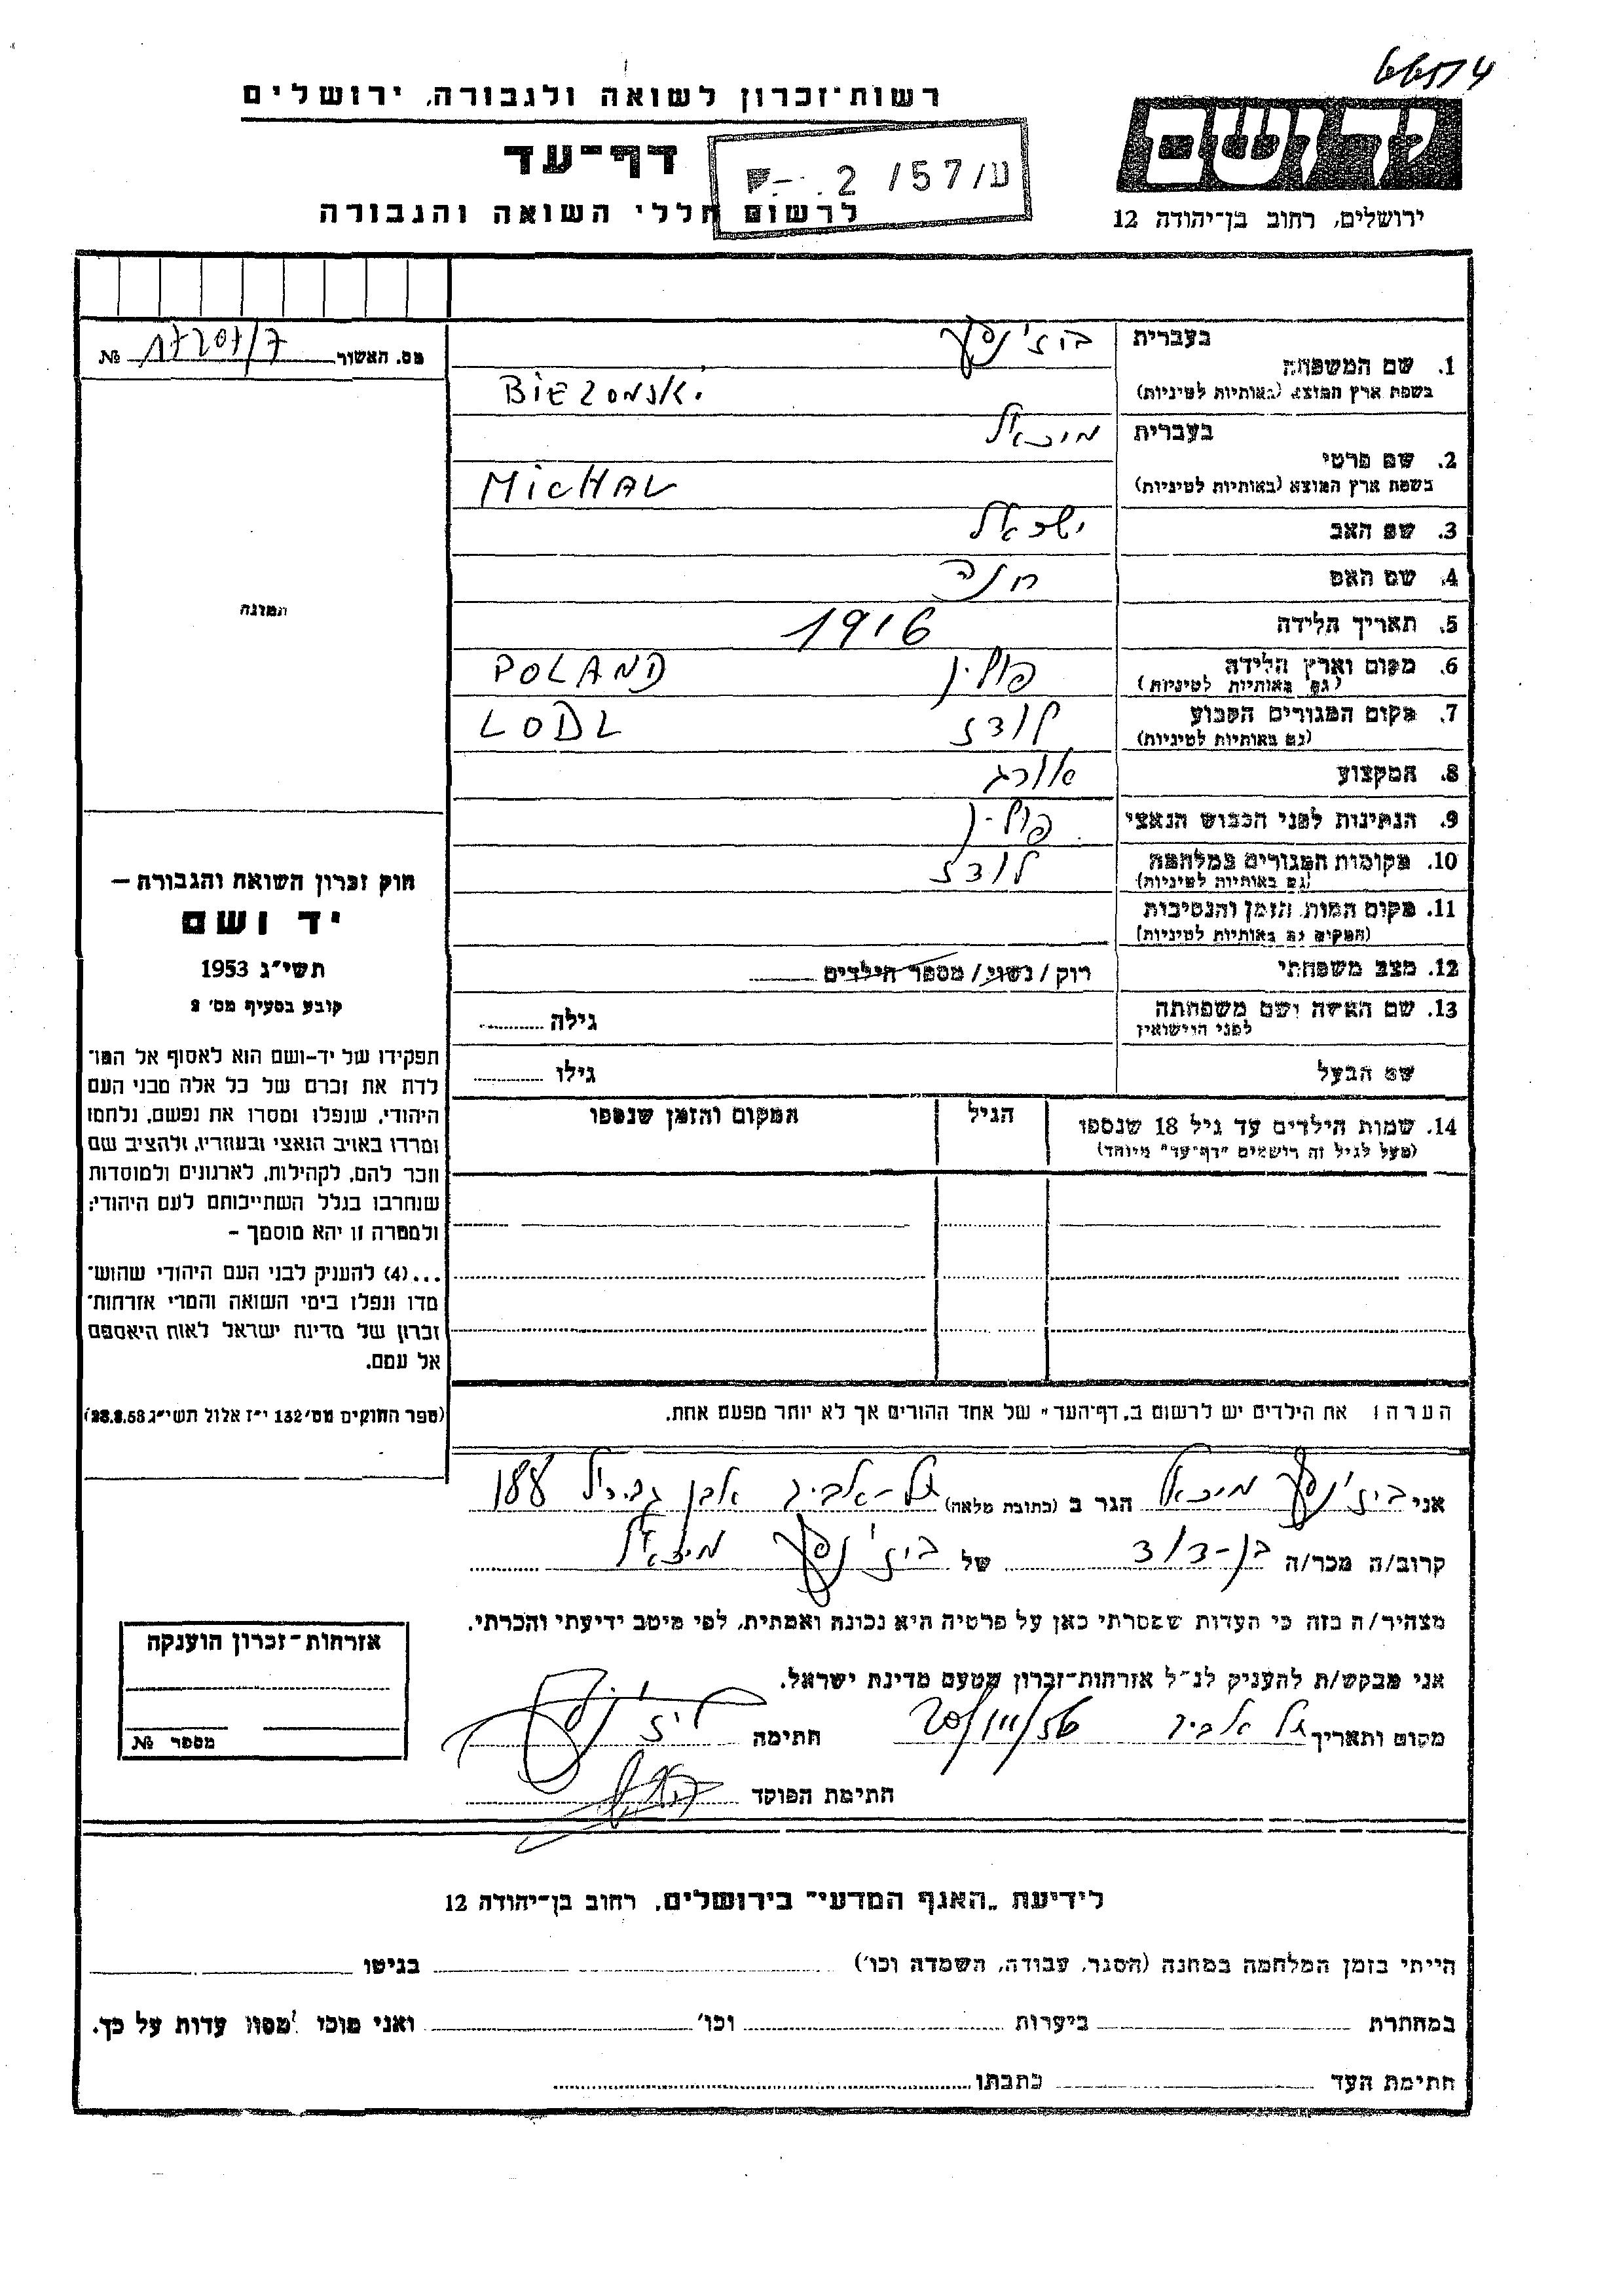 66514
רשות-זכרון לשואה ולגבורה, ירושלים
יד ושם
דף-עד
ע/57/ 2
לרשום חללי השואה והגבורה
ירושלים, רחוב בן-יהודה 12
מס. האשור № 17207/7
1. שם המשפחה בעברית
בשפת ארץ המוצא (באותיות לטיניות) BIEZONSKI
2. שם פרטי בעברית מיכאל
בשפת ארץ המוצא (באותיות לטיניות) MICHAL
3. שם האב ישראל
4. שם האם חנה
5. תאריך הלידה 1916
6. מקום וארץ הלידה פולין POLAND
(גם באותיות לטיניות)
7. מקום המגורים הקבוע לודז LODZ
(גם באותיות לטיניות)
8. המקצוע אורג
9. הנתינות לפני הכבוש הנאצי פולין
10. מקומות המגורים במלחמה לודז
(גם באותיות לטיניות)
11. מקום המות, הזמן והנסיבות
(המקום גם באותיות לטיניות)
12. מצב משפחתי רוק / נשוי / מספר הילדים
13. שם האשה ושם משפחתה גילה
לפני הנישואין
שם הבעל גילו
14. שמות הילדים עד גיל 18 שנספו הגיל המקום והזמן שנספו
(מעל לגיל זה רושמים "דף-עד" מיוחד)
תמונה
חוק זכרון השואה והגבורה –
יד ושם
תשי"ג 1953
קובע בסעיף מס' 2
תפקידו של יד-ושם הוא לאסוף אל המו-
לדת את זכרם של כל אלה מבני העם
היהודי, שנפלו ומסרו את נפשם, נלחמו
ומרדו באויב הנאצי ובעוזריו, ולהציב שם
וזכר להם, לקהילות, לארגונים ולמוסדות
שנחרבו בגלל השתייכותם לעם היהודי;
ולמטרה זו יהא מוסמך –
...(4) להעניק לבני העם היהודי שהוש-
מדו ונפלו בימי השואה והמרי אזרחות-
זכרון של מדינת ישראל לאות היאספם
אל עמם.
(ספר החוקים מס' 132 י"ז אלול תשי"ג 28.8.53)
הערה: את הילדים יש לרשום ב"דף-העד" של אחד ההורים אך לא יותר מפעם אחת.
אני מיכאל הגר ב (כתובת מלאה) תל-אביב אבן גבירול 188
קרוב/ה מכר/ה בן-דוד של מיכאל
מצהיר/ה בזה כי העדות שמסרתי כאן על פרטיה היא נכונה ואמתית, לפי מיטב ידיעתי והכרתי.
אני מבקש/ת להעניק לנ"ל אזרחות-זכרון מטעם מדינת ישראל.
מקום ותאריך תל אביב 20/III/56 חתימה
חתימת הפוקד
אזרחות-זכרון הוענקה
מספר №
לידיעת "האגף המדעי" בירושלים, רחוב בן-יהודה 12
הייתי בזמן המלחמה במחנה (הסגר, עבודה, השמדה וכו') בגיטו
במחתרת ביערות וכו' ואני מוכן למסור עדות על כך.
חתימת העד כתבתו